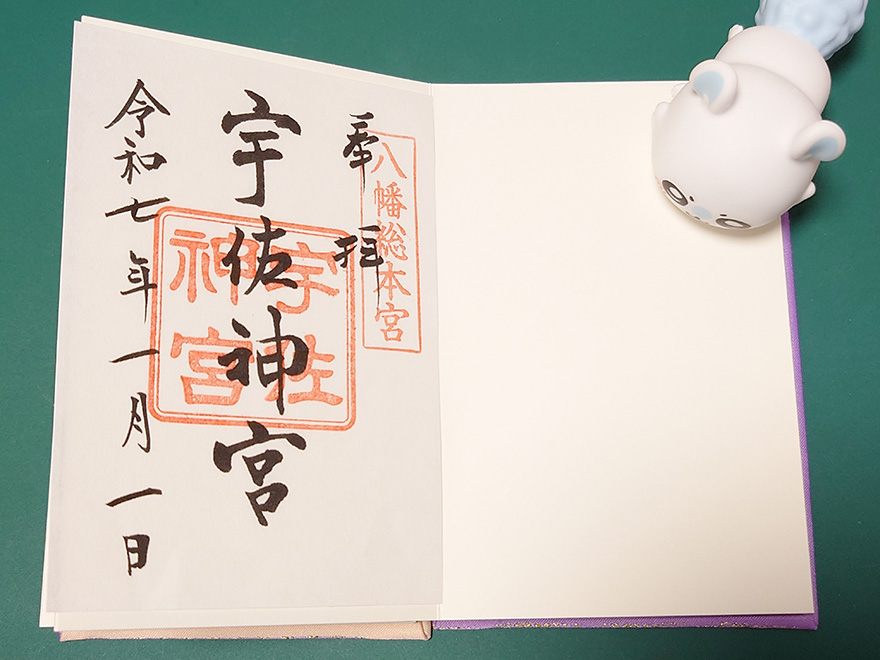 奉拝
八幡総本宮
宇佐神宮
宇佐神宮
令和七年一月一日